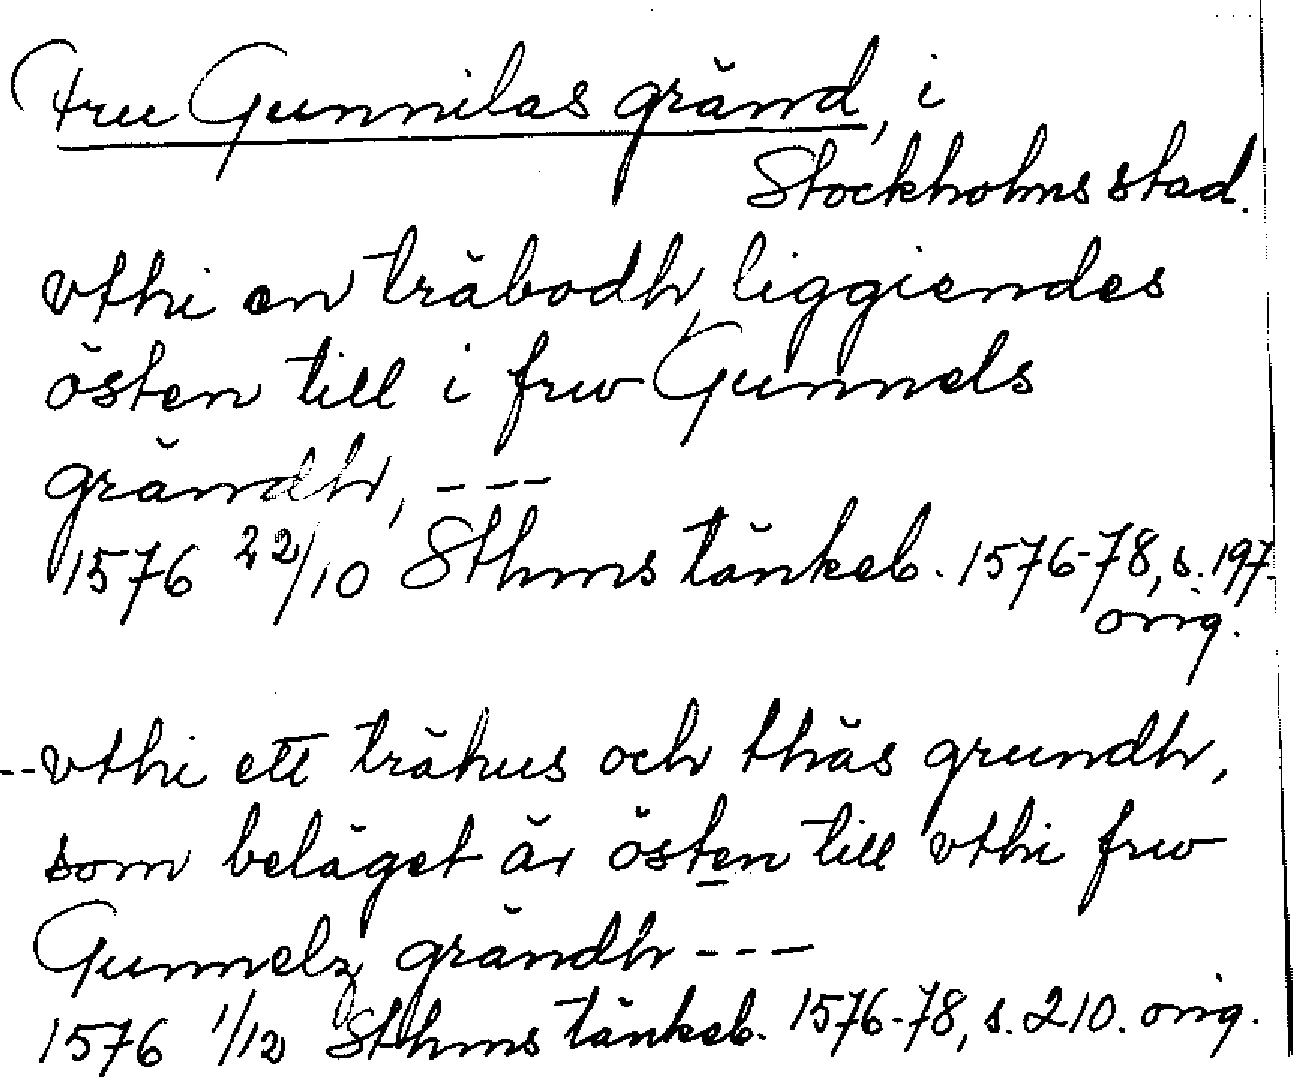 Fru Gunnilas gränd, i
Stockholms stad.
vthi en träbodh, liggiendes
östen till i frw Gunnels
grändh, ---
1576 22/10 Sthms tänkeb. 1576-78, s. 197.
orig.
--vthi ett trähus och thäs grundh,
som beläget är östen till vthi frw
Gunnelz grändh ---
1576 1/12 Sthms tänkeb. 1576-78, s. 210. orig.